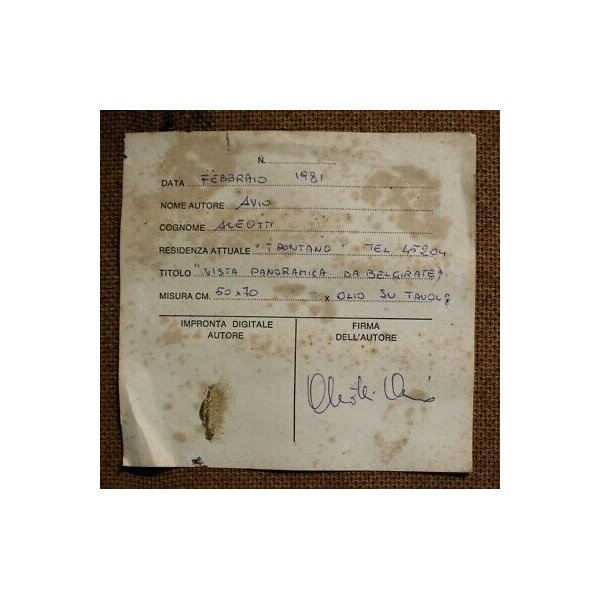 N. ....................
DATA FEBBRAIO 1981
NOME AUTORE AVIO
COGNOME ALEOTTI
RESIDENZA ATTUALE "TRONTANO" TEL 45204
TITOLO "VISTA PANORAMICA DA BELGIRATE"
MISURA CM. 50x70 x OLIO SU TAVOLA
IMPRONTA DIGITALE
AUTORE
FIRMA
DELL'AUTORE
Aleotti Avio